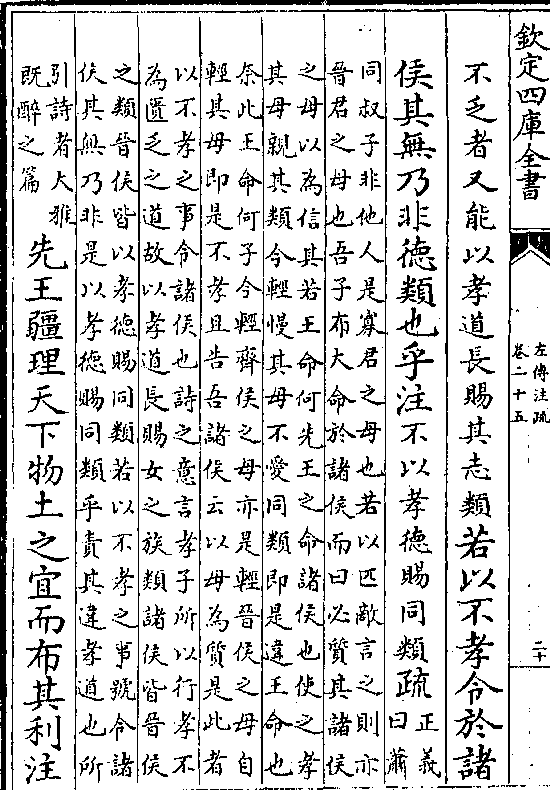 欽定四庫全書
左傳注疏
卷二十五
二十
不乏者又能以孝道長賜其志類若以不孝令於諸
侯其無乃非德類也乎注不以孝德賜同類疏
正義
曰蕭
同叔子非他人是寡君之母也若以匹敵言之則亦
晉君之母也吾子布大命於諸侯而曰必質其諸侯
之母以為信其若王命何先王之命諸侯也使之孝
其母親其類今輕慢其母不愛同類即是違王命也
奈此王命何子今輕齊侯之母亦是輕晉侯之母自
輕其母即是不孝且告吾諸侯云以母為質是此者
以不孝之事令諸侯也詩之意言孝子所以行孝不
為匱乏之道故以孝道長賜女之族類諸侯皆晉侯
之類晉侯皆以孝德賜同類若以不孝之事號令諸
侯其無乃非是以孝德賜同類乎責其違孝道也所
引詩者大雅
既醉之篇
先王疆理天下物土之宜而布其利注